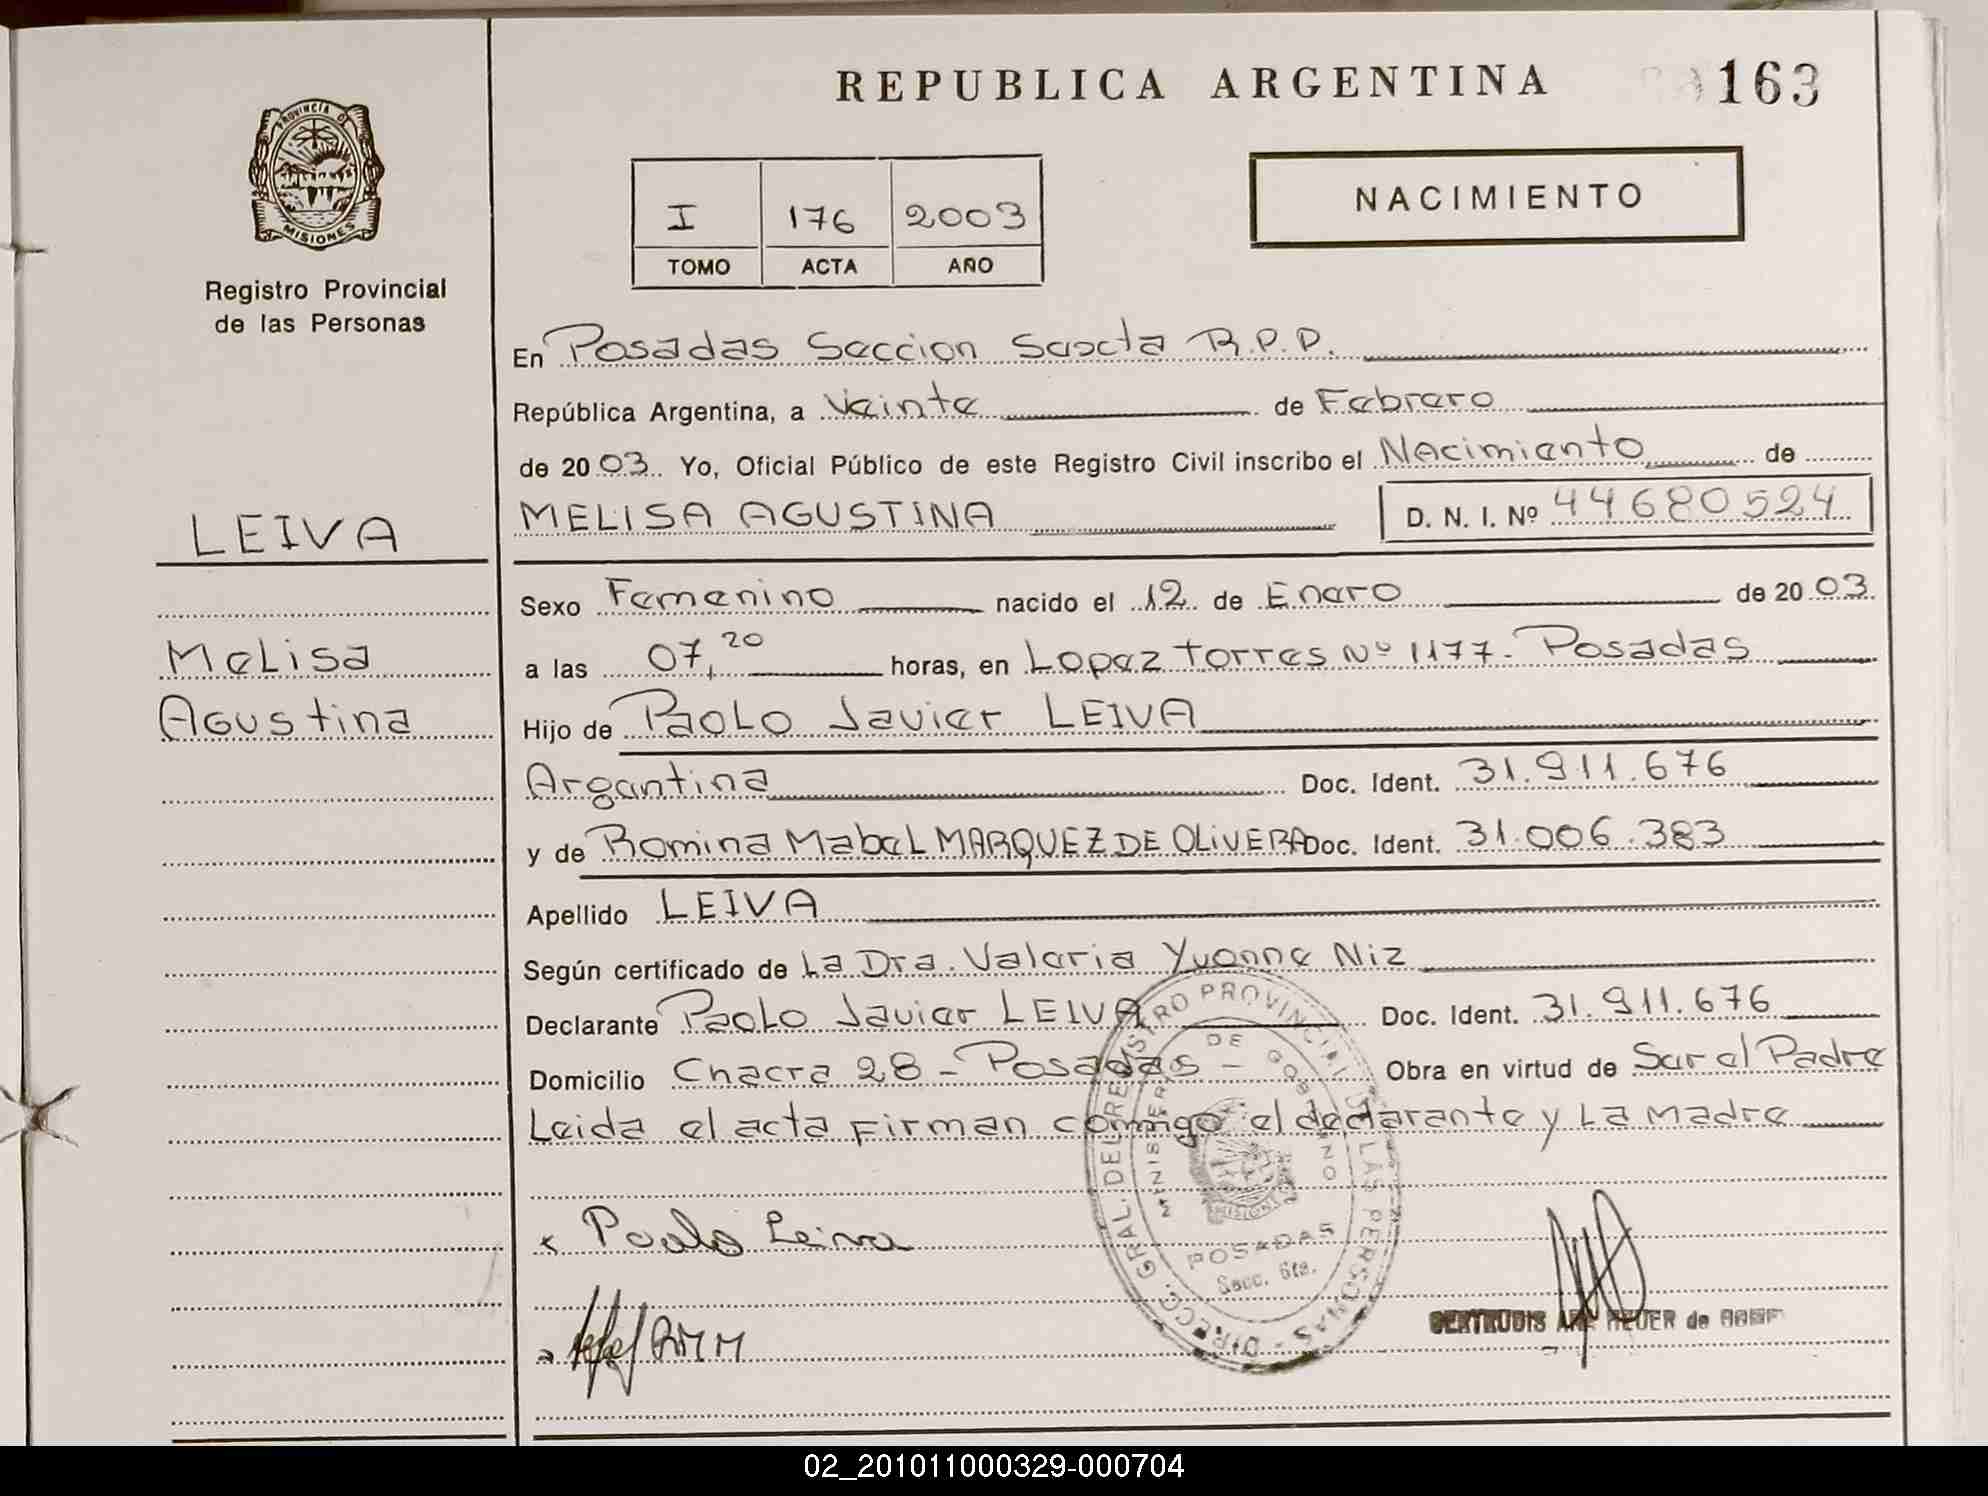 REPUBLICA ARGENTINA
163
PROVINCIA DE
MISIONES
Registro Provincial
de las Personas
I 176 2003
TOMO ACTA AÑO
NACIMIENTO
En Posadas Seccion Sexta R.P.P.
República Argentina, a Veinte de Febrero
de 2003. Yo, Oficial Público de este Registro Civil inscribo el Nacimiento de
LEIVA
MELISA AGUSTINA D. N. I. Nº 44680524
Sexo Femenino nacido el 12 de Enero de 2003.
Melisa
a las 07,20 horas, en Lopez Torres Nº 1177. Posadas
Agustina
Hijo de Paolo Javier LEIVA
Argentina Doc. Ident. 31.911.676
y de Romina Mabel MARQUEZ DE OLIVERA Doc. Ident. 31.006.383
Apellido LEIVA
Según certificado de La Dra. Valeria Yvonne Niz
Declarante Paolo Javier LEIVA Doc. Ident. 31.911.676
Domicilio Chacra 28 - Posadas - Obra en virtud de Ser el Padre
Leida el acta firman conmigo el declarante y La Madre
DIRECC. GRAL. DEL REGISTRO PROVINCIAL DE LAS PERSONAS
MINISTERIO DE GOBIERNO
MISIONES
POSADAS
Secc. 6ta.
x Paolo Leiva
RMM
GERTRUDIS de
02_201011000329-000704